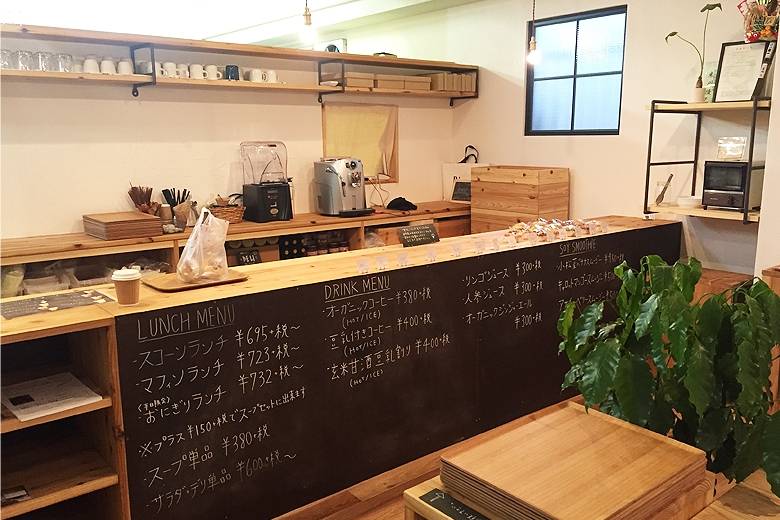 LUNCH MENU
・スコーンランチ ¥695+税〜
・マフィンランチ ¥723+税〜
(平日限定)
・おにぎりランチ ¥732+税〜
※プラス¥150+税でスープセットに出来ます
・スープ単品 ¥380+税
・サラダ・デリ単品 ¥600+税〜
DRINK MENU
・オーガニックコーヒー ¥380+税
(HOT/ICE)
・豆乳付きコーヒー ¥400+税
(HOT/ICE)
・玄米甘酒豆乳割り ¥400+税
(HOT/ICE)
・リンゴジュース ¥300+税
・人参ジュース ¥300+税
・オーガニックジンジャーエール
¥300+税
SOY SMOOTHIE